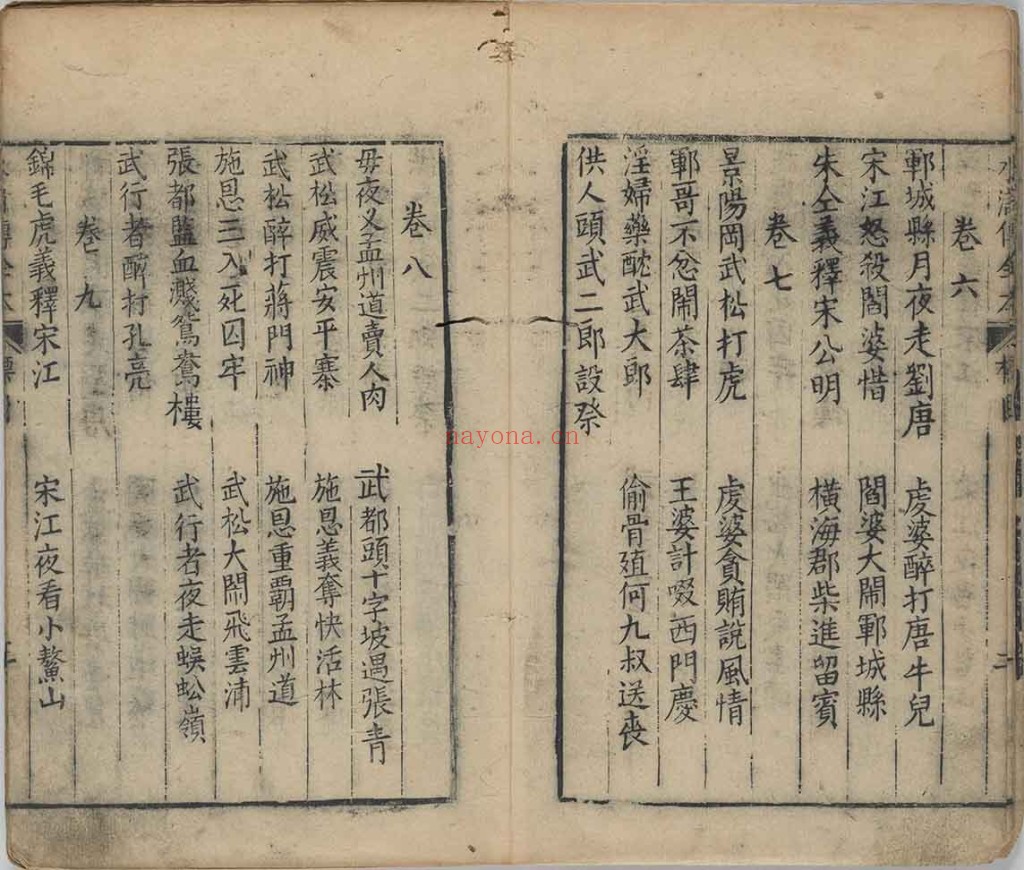 卷六
鄆城縣月夜走劉唐 虔婆醉打唐牛兒
宋江怒殺閻婆惜 閻婆大鬧鄆城縣
朱仝義釋宋公明 橫海郡柴進留賓
卷七
景陽岡武松打虎 虔婆貪賄說風情
鄆哥不忿鬧茶肆 王婆計啜西門慶
淫婦藥酖武大郎 偷骨殖何九叔送喪
供人頭武二郎設祭
卷八
毋夜叉孟州道賣人肉 武都頭十字坡遇張青
武松威震安平寨 施恩義奪快活林
武松醉打蔣門神 施恩重霸孟州道
施恩三入死囚牢 武松大閙飛雲浦
張都監血濺鴛鴦樓 武行者夜走蜈蚣嶺
武行者醉打孔亮
卷九
錦毛虎義釋宋江 宋江夜看小鰲山
nayona.cn